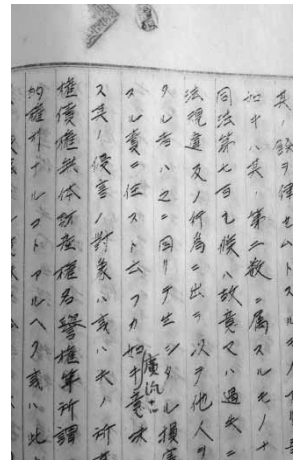 其ノ錄ヲ律セムトスルモノアリ
如キハ其ノ第二数ニ属スルモノナ
同法第七百九條ハ故意又ハ過失ニ
法規違反ノ行為ニ出テ以テ他人ヲ
タル者ハ之ニ因リテ生シタル損害
スル責ニ任スト云フカ如キ廣汎ナ意味
ス其ノ侵害ノ対象ハ或ハ夫ノ所有
権債権無体財産権名誉権等所謂
的権利ナルコトアルヘク或ハ此